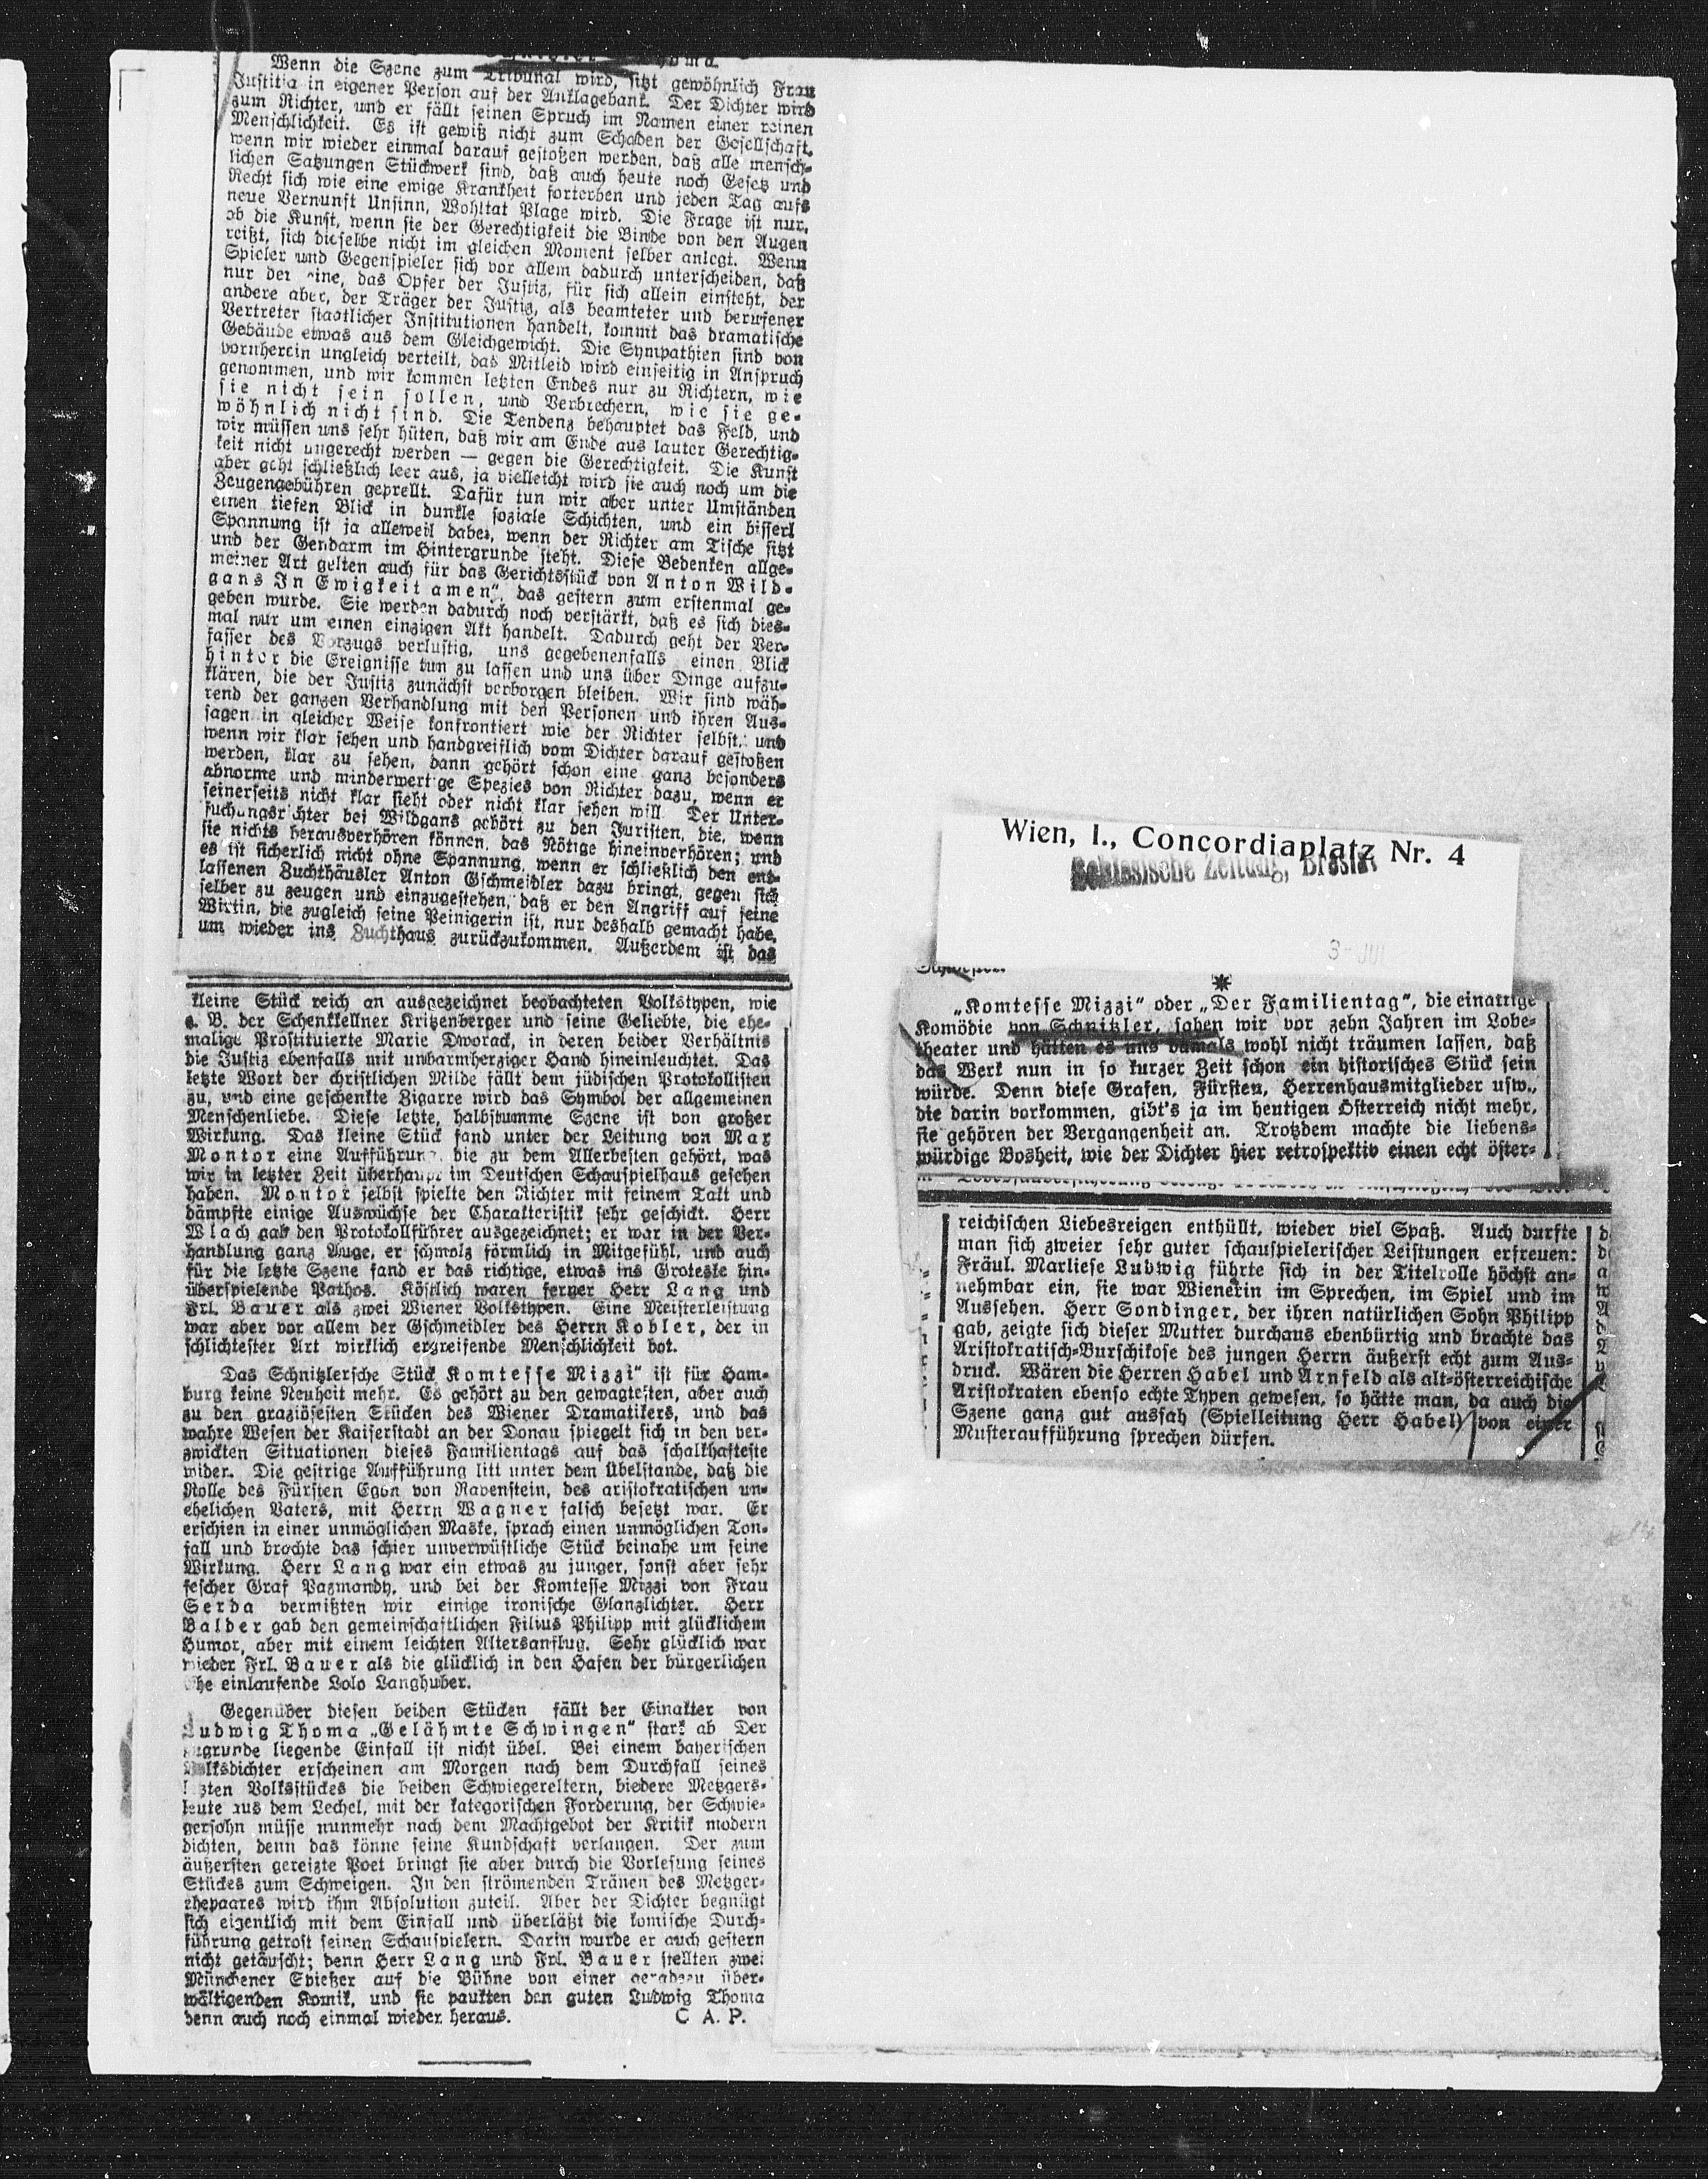 Wenn die Szene zum Tribunal wird, sitzt gewöhnlich Frau
Justitia in eigener Person auf der Anklagebank. Der Dichter wird
zum Richter, und er fällt seinen Spruch im Namen einer reinen
Menschlichkeit. Es ist gewiß nicht zum Schaden der Gesellschaft,
wenn wir wieder einmal darauf gestoßen werden, daß alle mensch-
lichen Satzungen Stückwerk sind, daß auch heute noch Gesetz und
Recht sich wie eine ewige Krankheit forterben und jeden Tag aufs
neue Vernunft Unsinn, Wohltat Plage wird. Die Frage ist nur,
ob die Kunst, wenn sie der Gerechtigkeit die Binde von den Augen
reißt, sich dieselbe nicht im gleichen Moment selber anlegt. Wenn
Spieler und Gegenspieler sich vor allem dadurch unterscheiden, daß
nur der eine, das Opfer der Justiz, für sich allein einsteht, der
andere aber, der Träger der Justiz, als beamteter und berufener
Vertreter staatlicher Institutionen handelt, kommt das dramatische
Gebäude etwas aus dem Gleichgewicht. Die Sympathien sind von
vornherein ungleich verteilt, das Mitleid wird einseitig in Anspruch
genommen, und wir kommen letzten Endes nur zu Richtern, wie
sie nicht sein sollen, und Verbrechern, wie sie ge-
wöhnlich nicht sind. Die Tendenz behauptet das Feld, und
wir müssen uns sehr hüten, daß wir am Ende aus lauter Gerechtig-
keit nicht ungerecht werden — gegen die Gerechtigkeit. Die Kunst
aber geht schließlich leer aus, ja vielleicht wird sie auch noch um die
Zeugengebühren geprellt. Dafür tun wir aber unter Umständen
einen tiefen Blick in dunkle soziale Schichten, und ein bisserl
Spannung ist ja alleweil dabei, wenn der Richter am Tische sitzt
und der Gendarm im Hintergrunde steht. Diese Bedenken allge-
meiner Art gelten auch für das Gerichtsstück von Anton Wild-
gans In Ewigkeit amen", das gestern zum erstenmal ge-
geben wurde. Sie werden dadurch noch verstärkt, daß es sich dies-
mal nur um einen einzigen Akt handelt. Dadurch geht der Ver-
fasser des Vorzugs verlustig, uns gegebenenfalls einen Blick
hinter die Ereignisse tun zu lassen und uns über Dinge aufzu-
klären, die der Justiz zunächst verborgen bleiben. Wir sind wäh-
rend der ganzen Verhandlung mit den Personen und ihren Aus-
sagen in gleicher Weise konfrontiert wie der Richter selbst, und
wenn wir klar sehen und handgreiflich vom Dichter darauf gestoßen
werden, klar zu sehen, dann gehört schon eine ganz besonders
abnorme und minderwertige Spezies von Richter dazu, wenn er
seinerseits nicht klar sieht oder nicht klar sehen will. Der Unter-
suchungsrichter bei Wildgans gehört zu den Juristen, die, wenn
sie nichts herausverhören können, das Nötige hineinverhören; und
es ist sicherlich nicht ohne Spannung, wenn er schließlich den ent-
lassenen Zuchthäusler Anton Gschmeidler dazu bringt, gegen sich
selber zu zeugen und einzugestehen, daß er den Angriff auf seine
Wirtin, die zugleich seine Peinigerin ist, nur deshalb gemacht habe,
um wieder ins Zuchthaus zurückzukommen. Außerdem ist das
kleine Stück reich an ausgezeichnet beobachteten Volkstypen, wie
z. B. der Schenkkellner Kritzenberger und seine Geliebte, die ehe-
malige Prostituierte Marie Dworack, in deren beider Verhältnis
die Justiz ebenfalls mit unbarmherziger Hand hineinleuchtet. Das
letzte Wort der christlichen Milde fällt dem jüdischen Protokollisten
zu, und eine geschenkte Zigarre wird das Symbol der allgemeinen
Menschenliebe. Diese letzte, halbstumme Szene ist von großer
Wirkung. Das kleine Stück fand unter der Leitung von Max
Montor eine Aufführung, die zu dem Allerbesten gehört, was
wir in letzter Zeit überhaupt im Deutschen Schauspielhaus gesehen
haben. Montor selbst spielte den Richter mit feinem Takt und
dämpfte einige Auswüchse der Charakteristik sehr geschickt. Herr
Wlach gab den Protokollführer ausgezeichnet; er war in der Ver-
handlung ganz Auge, er schmolz förmlich in Mitgefühl, und auch
für die letzte Szene fand er das richtige, etwas ins Groteske hin-
überspielende Pathos. Köstlich waren ferner Herr Lang und
Frl. Bauer als zwei Wiener Volkstypen. Eine Meisterleistung
war aber vor allem der Gschmeidler des Herrn Kobler, der in
schlichtester Art wirklich ergreifende Menschlichkeit bot.
Das Schnitzlersche Stück Komtesse Mizzi" ist für Ham-
burg keine Neuheit mehr. Es gehört zu den gewagtesten, aber auch
zu den graziösesten Stücken des Wiener Dramatikers, und das
wahre Wesen der Kaiserstadt an der Donau spiegelt sich in den ver-
zwickten Situationen dieses Familientags auf das schalkhafteste
wider. Die gestrige Aufführung litt unter dem Übelstande, daß die
Rolle des Fürsten Egon von Ravenstein, des aristokratischen un-
ehelichen Vaters, mit Herrn Wagner falsch besetzt war. Er
erschien in einer unmöglichen Maske, sprach einen unmöglichen Ton-
fall und brachte das schier unverwüstliche Stück beinahe um seine
Wirkung. Herr Lang war ein etwas zu junger, sonst aber sehr
fescher Graf Pazmandy, und bei der Komtesse Mizzi von Frau
Serda vermißten wir einige ironische Glanzlichter. Herr
Balder gab den gemeinschaftlichen Filius Philipp mit glücklichem
Humor, aber mit einem leichten Altersanflug. Sehr glücklich war
wieder Frl. Bauer als die glücklich in den Hafen der bürgerlichen
Ehe einlaufende Lolo Langhuber.
Gegenüber diesen beiden Stücken fällt der Einakter von
Ludwig Thoma „Gelähmte Schwingen" stark ab Der
zugrunde liegende Einfall ist nicht übel. Bei einem bayerischen
Volksdichter erscheinen am Morgen nach dem Durchfall seines
letzten Volksstückes die beiden Schwiegereltern, biedere Metzgers-
leute aus dem Lechel, mit der kategorischen Forderung, der Schwie-
gersohn müsse nunmehr nach dem Machtgebot der Kritik modern
dichten, denn das könne seine Kundschaft verlangen. Der zum
äußersten gereizte Poet bringt sie aber durch die Vorlesung seines
Stückes zum Schweigen. In den strömenden Tränen des Metzger-
ehepaares wird ihm Absolution zuteil. Aber der Dichter begnügt
sich eigentlich mit dem Einfall und überläßt die komische Durch-
führung getrost seinen Schauspielern. Darin wurde er auch gestern
nicht getäuscht; denn Herr Lang und Frl. Bauer stellten zwei
Münchener Spießer auf die Bühne von einer geradezu über-
wältigenden Komik, und sie paukten den guten Ludwig Thoma
denn auch noch einmal wieder heraus. C A. P.
Wien, I., Concordiaplatz Nr. 4
Schlesische Zeitung, Breslau
„Komtesse Mizzi" oder „Der Familientag", die einaktige
Komödie von Schnitzler, sahen wir vor zehn Jahren im Lobe-
theater und hätten es uns damals wohl nicht träumen lassen, daß
das Werk nun in so kurzer Zeit schon ein historisches Stück sein
würde. Denn diese Grafen, Fürsten, Herrenhausmitglieder usw.,
die darin vorkommen, gibt's ja im heutigen Österreich nicht mehr,
sie gehören der Vergangenheit an. Trotzdem machte die liebens-
würdige Bosheit, wie der Dichter hier retrospektiv einen echt öster-
reichischen Liebesreigen enthüllt, wieder viel Spaß. Auch durfte
man sich zweier sehr guter schauspielerischer Leistungen erfreuen:
Fräul. Marliese Ludwig führte sich in der Titelrolle höchst an-
nehmbar ein, sie war Wienerin im Sprechen, im Spiel und im
Aussehen. Herr Sondinger, der ihren natürlichen Sohn Philipp
gab, zeigte sich dieser Mutter durchaus ebenbürtig und brachte das
Aristokratisch-Burschikose des jungen Herrn äußerst echt zum Aus-
druck. Wären die Herren Habel und Arnfeld als alt-österreichische
Aristokraten ebenso echte Typen gewesen, so hätte man, da auch die
Szene ganz gut aussah (Spielleitung Herr Habel) von einer
Musteraufführung sprechen dürfen.